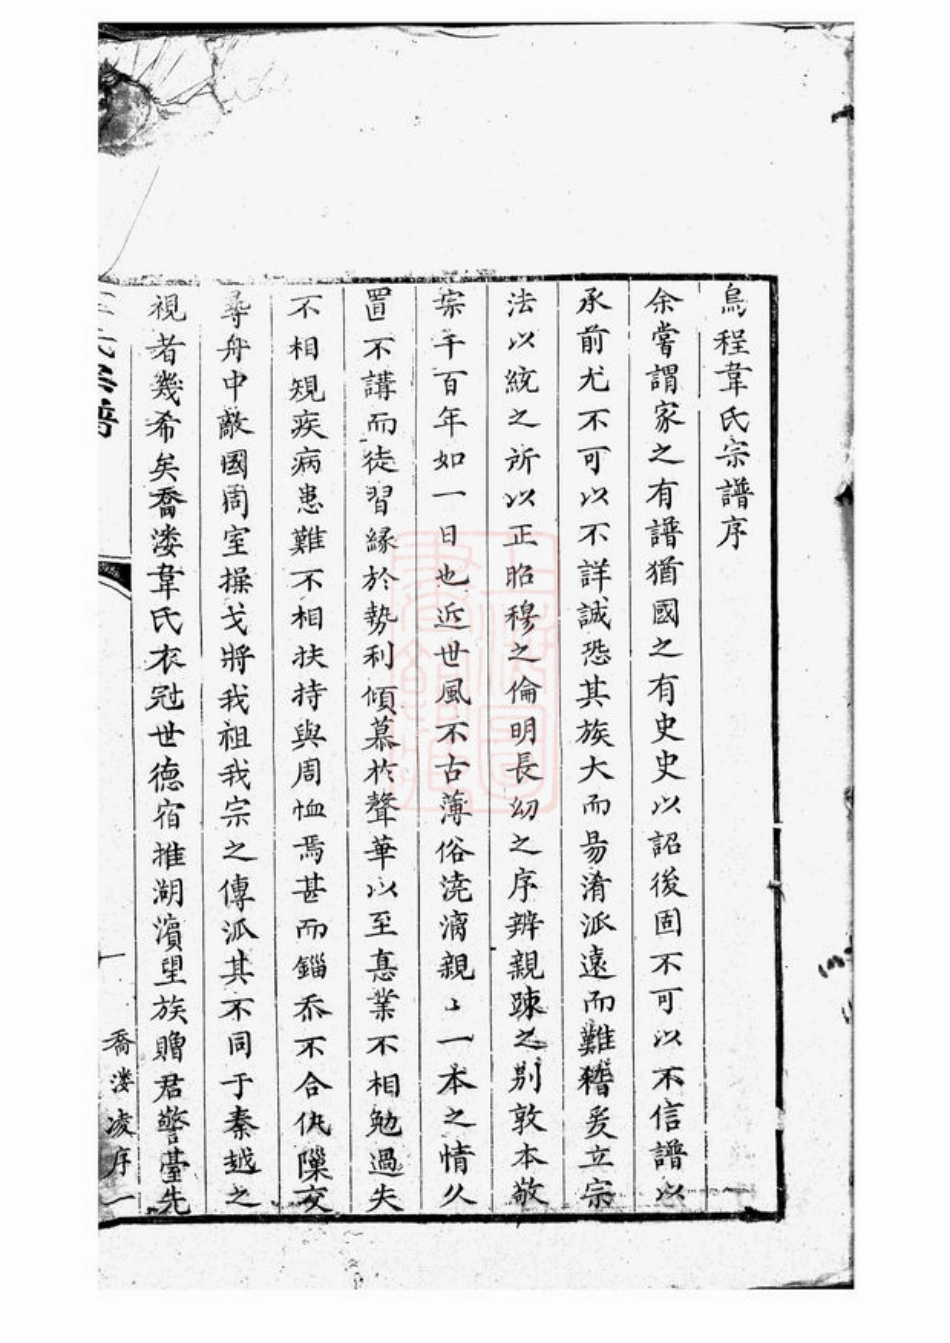 烏程韋氏宗譜序
余嘗謂家之有譜猶國之有史史以詔後固不可以不信譜以
承前尤不可以不詳誠恐其族大而易淆派遠而難稽爰立宗
法以統之所以正昭穆之倫明長幼之序辨親踈之别敦本敬
宗千百年如一日也近世風不古薄俗澆漓親〻一本之情久
置不講而徒習緣於勢利傾慕於聲華以至惪業不相勉過失
不相規疾病患難不相扶持與周恤焉甚而錙黍不合仇隟交
尋舟中敵國周室操戈將我祖我宗之傳派其不同于秦越之
視者幾希矣喬溇韋氏衣冠世德宿推湖濵望族贈君警臺先
氏宗譜
喬溇凌序一